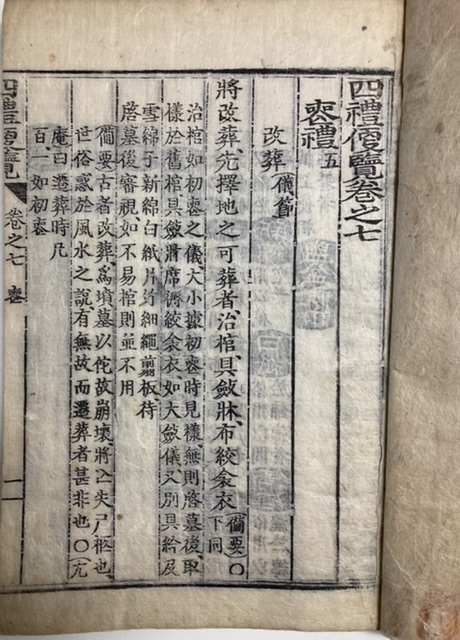 四禮便覽卷之七
喪禮五
改葬儀節
將改葬先擇地之可葬者治棺具斂牀布絞衾衣備要下同○
治棺如初喪之儀大小據初喪時見樣無則啓墓後取
樣於舊棺具斂牀席褥絞衾衣如大斂儀又別具給及
雪綿子新綿白紙片竹細繩翦板待
啓墓後審視如不易棺則並不用
備要古者改葬爲墳墓以佗故崩壞將亡失尸柩也
世俗惑於風水之說有無故而遷葬者甚非也○尤
庵曰遷葬時凡
百一如初喪
四禮便覽 卷之七 喪 一